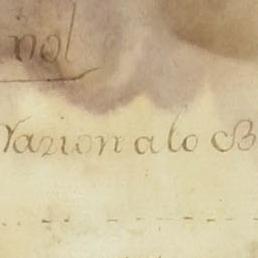 ñol
Nazion a lo B